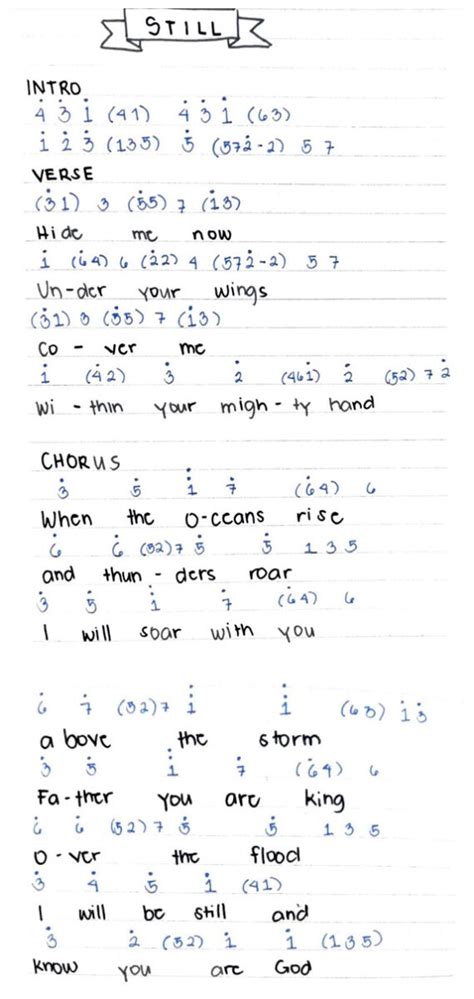 STILL
INTRO
4̇ 3̇ 1̇ (41) 4̇ 3̇ 1̇ (63)
1̇ 2̇ 3̇ (135) 5̇ (572̇-2) 5 7
VERSE
(3̇1) 3 (5̇5) 7 (1̇3)
Hide me now
1̇ (6̇4) 6 (2̇2) 4 (572̇-2) 5 7
Un-der your wings
(3̇1) 3 (5̇5) 7 (1̇3)
Co - ver me
1̇ (4̇2) 3̇ 2̇ (461̇) 2̇ (52) 7 2̇
Wi - thin your migh - ty hand
CHORUS
3̇ 5̇ 1̇̇ 7̇ (6̇4) 6
When the o-ceans rise
6̇ 6̇ (52) 7 5̇ 5̇ 1 3 5
and thun - ders roar
3̇ 5̇ 1̇̇ 7̇ (6̇4) 6
I will soar with you
6̇ 7̇ (52) 7 1̇̇ 1̇̇ (63) 1̇ 3̇
a bove the storm
3̇ 5̇ 1̇̇ 7̇ (6̇4) 6
Fa-ther you are king
6̇ 6̇ (52) 7 5̇ 5̇ 1 3 5
o - ver the flood
3̇ 4̇ 5̇ 1̇ (41)
I will be still and
3̇ 2̇ (52) 1̇ 1̇ (135)
know you are God